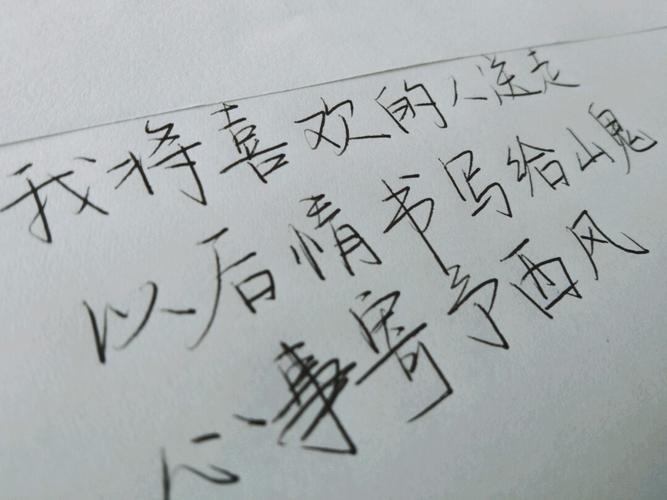 我将喜欢的人送走
以后情书写给山鬼
心事寄予西风